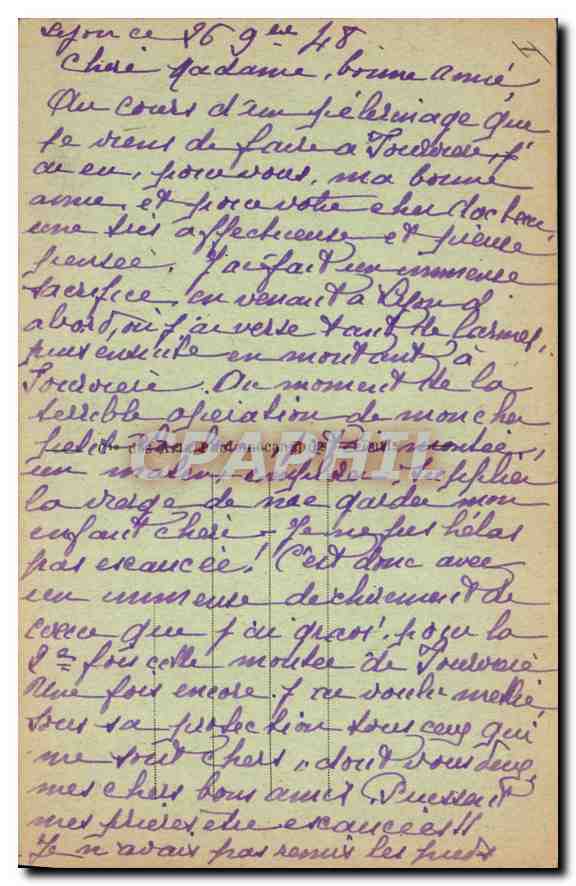 Lyon ce 26 9bre 48
Chère Madame, bonne amie,
Au cours d'un pèlerinage que
je viens de faire à Fourvière, j'
ai eu, pour vous, ma bonne
amie, et pour votre cher docteur,
une très affectueuse et pieuse
pensée. J'ai fait un immense
sacrifice, en venant à Lyon d'
abord, où j'ai versé tant de larmes,
puis ensuite en montant à
Fourvière. Au moment de la
terrible opération de mon cher
petit j'étais montée,
un matin supplier
la vierge de me garder mon
enfant chéri - Je ne fus hélas
pas exaucée! C'est donc avec
un immense déchirement de
coeur que j'ai gravi, pour la
2e fois cette montée de Fourvière
Une fois encore j'ai voulu mettre
sous sa protection tous ceux qui
me sont chers, dont vous deux,
mes chers bons amis. Puissent
mes prières être exaucées!!
Je n'avais pas remis les pieds
CPAPHIL